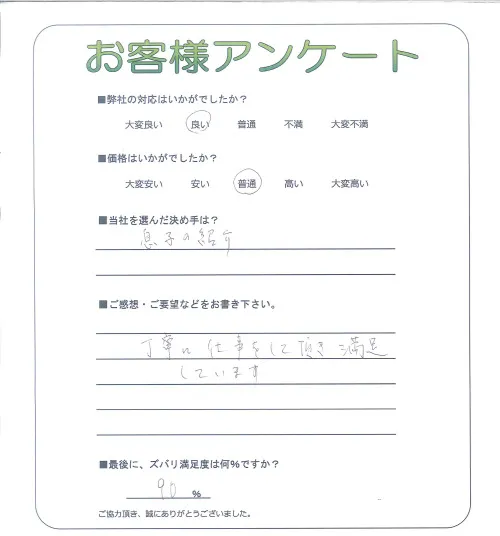 お客様アンケート
■弊社の対応はいかがでしたか？
大変良い 良い 普通 不満 大変不満
■価格はいかがでしたか？
大変安い 安い 普通 高い 大変高い
■当社を選んだ決め手は？
息子の紹介
■ご感想・ご要望などをお書き下さい。
丁寧に仕事をして頂き満足
しています
■最後に、ズバリ満足度は何％ですか？
90 %
ご協力頂き、誠にありがとうございました。